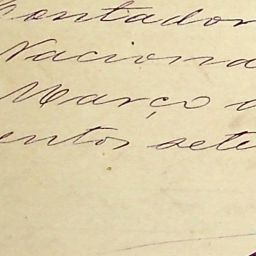 Contador
Naciona
Março d
entos sete